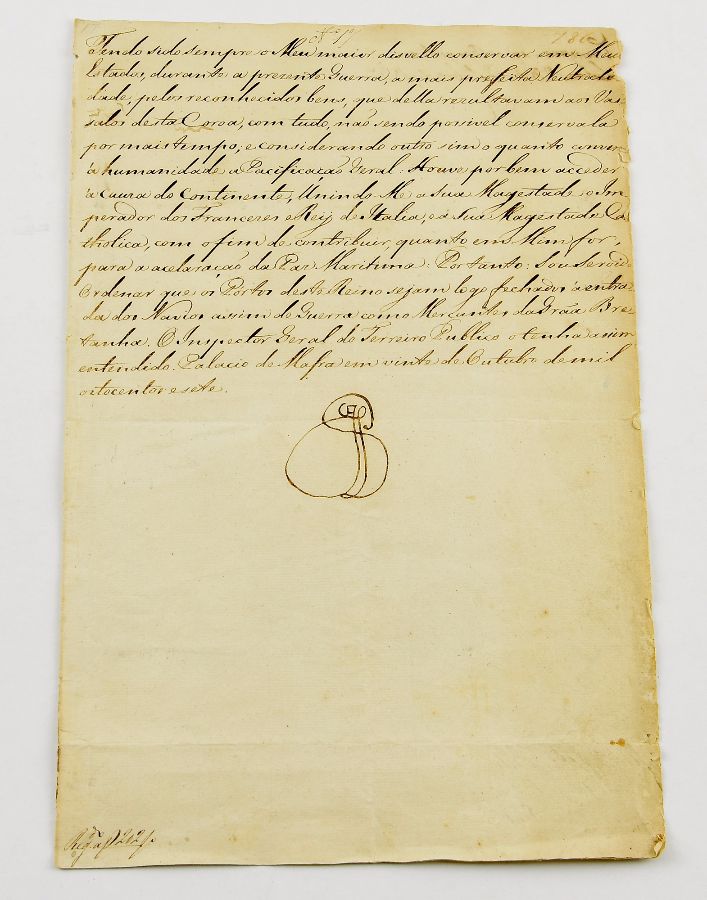 Tendo sido sempre o Meu maior disvello conservar em Meus
Estados, durante a prezente Guerra, a mais prefeita Neutrali-
dade, pelos reconhecidos bens, que della rezultavam aos Vas-
salos desta Coroa, com tudo, não sendo possivel conserva la
por mais tempo, e considerando outro sim o quanto convem
á humanidade a Pacificação Geral: Houve por bem acceder
á Cauza do Continente, Unindo Me a Sua Magestade o Im-
perador dos Francezes e Rey de Italia, e a Sua Magestade Ca-
tholica, com o fim de contribuir, quanto em Mim for,
para a acelaração da Paz Maritima: Portanto: Sou Servido
Ordenar que os Portos deste Reino sejam logo fechados á entra-
da dos Navios assim de Guerra como Mercantes da Grãa Bre-
tanha. O Inspector Geral do Terreiro Publico o tenha assim
entendido. Palacio de Mafra em vinte de Outubro de mil
oitocentos e sete.
Reg.da a f 212